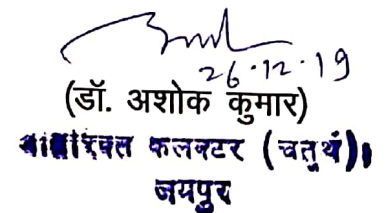 26.12.19
(डॉ. अशोक कुमार)
अतिरिक्त कलक्टर (चतुर्थ)
जयपुर